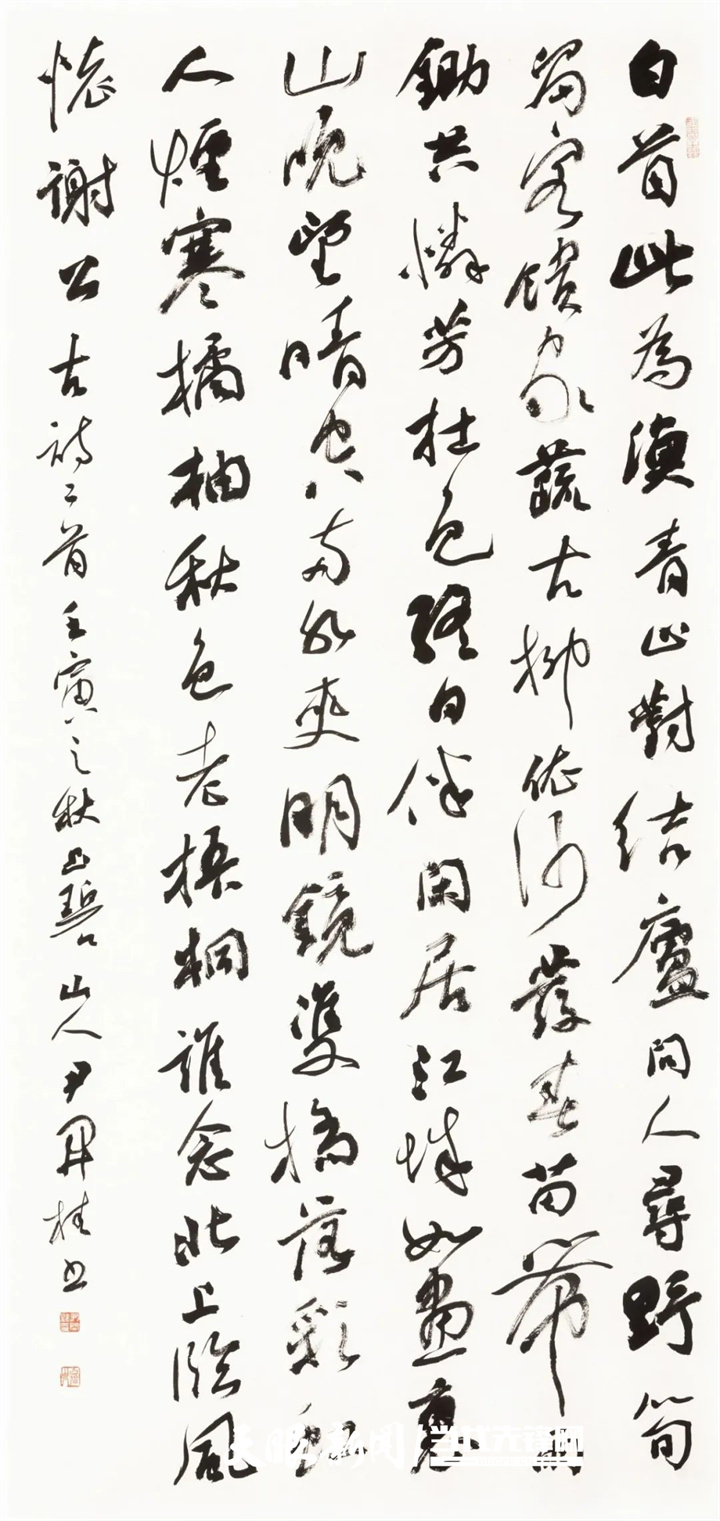 白首此為漁青山對結廬問人尋野筍
留客饋家蔬古柳依沙發春苗帶雨
鋤共憐芳杜色終日伴閑居江城如畫裏
山晚望晴空兩水夾明鏡雙橋落彩虹
人煙寒橘柚秋色老梧桐誰念北上臨風
懷謝公古詩二首壬寅之秋碧山人尹開桂書
天眼新闻
当代先锋网